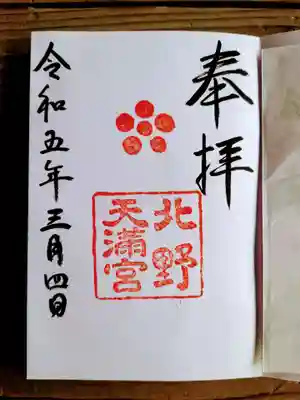 奉拝
北野
天満宮
令和五年三月四日